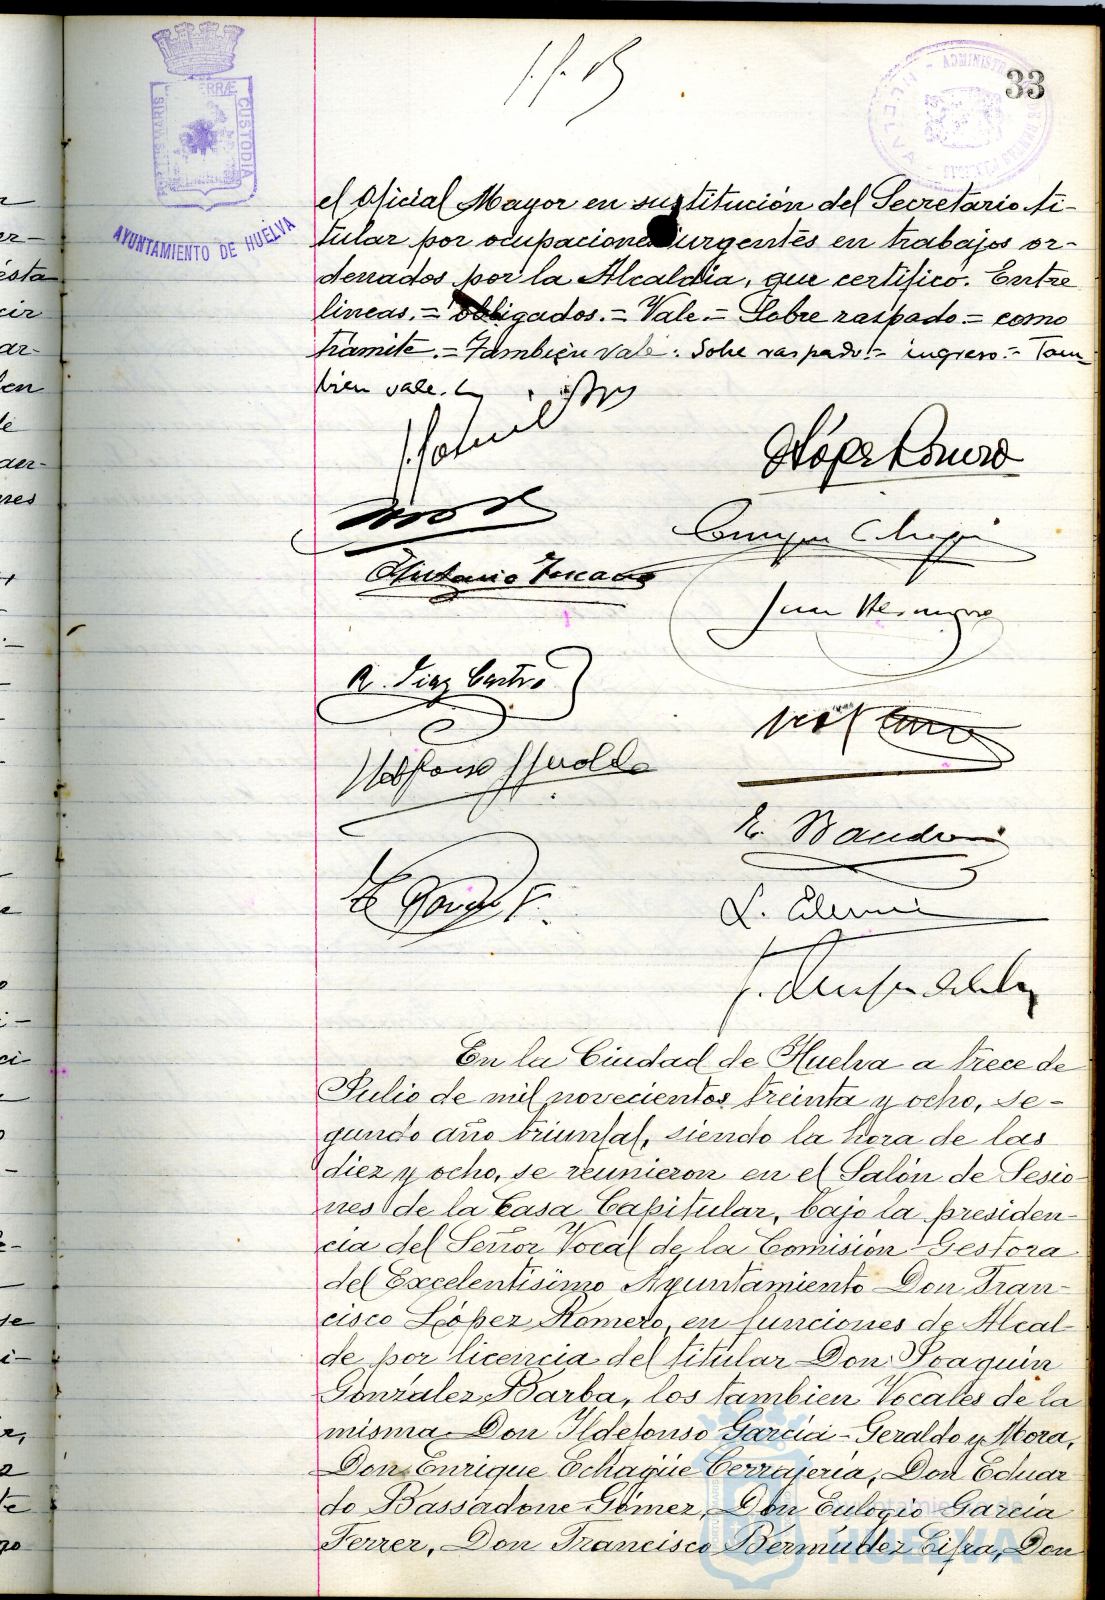 33
AYUNTAMIENTO DE HUELVA
CUSTODIA
el Oficial Mayor en sustitución del Secretario ti-
tular por ocupaciones urgentes en trabajos or-
denados por la Alcaldia, que certifico. Entre
lineas.= obligados.= Vale.= Sobre raspado.= como
tramite.= Tambien vale. Sobre raspado.= ingreso.= Tam-
bien vale.
López Romero
Antonio Toscano
R. Diaz Castro
En la Ciudad de Huelva a trece de
Julio de mil novecientos treinta y ocho, se-
gundo año triunfal, siendo la hora de las
diez y ocho, se reunieron en el Salón de Sesio-
nes de la Casa Capitular, bajo la presiden-
cia del Señor Vocal de la Comisión Gestora
del Excelentisimo Ayuntamiento Don Fran-
cisco López Romero, en funciones de Alcal-
de por licencia del titular Don Joaquín
González Barba, los tambien Vocales de la
misma Don Ildefonso García-Geraldo y Mora,
Don Enrique Echagüe Cerrajería, Don Eduar
do Bassadone Gómez, Don Eulogio García
Ferrer, Don Francisco Bermúdez Cifra, Don
HUELVA